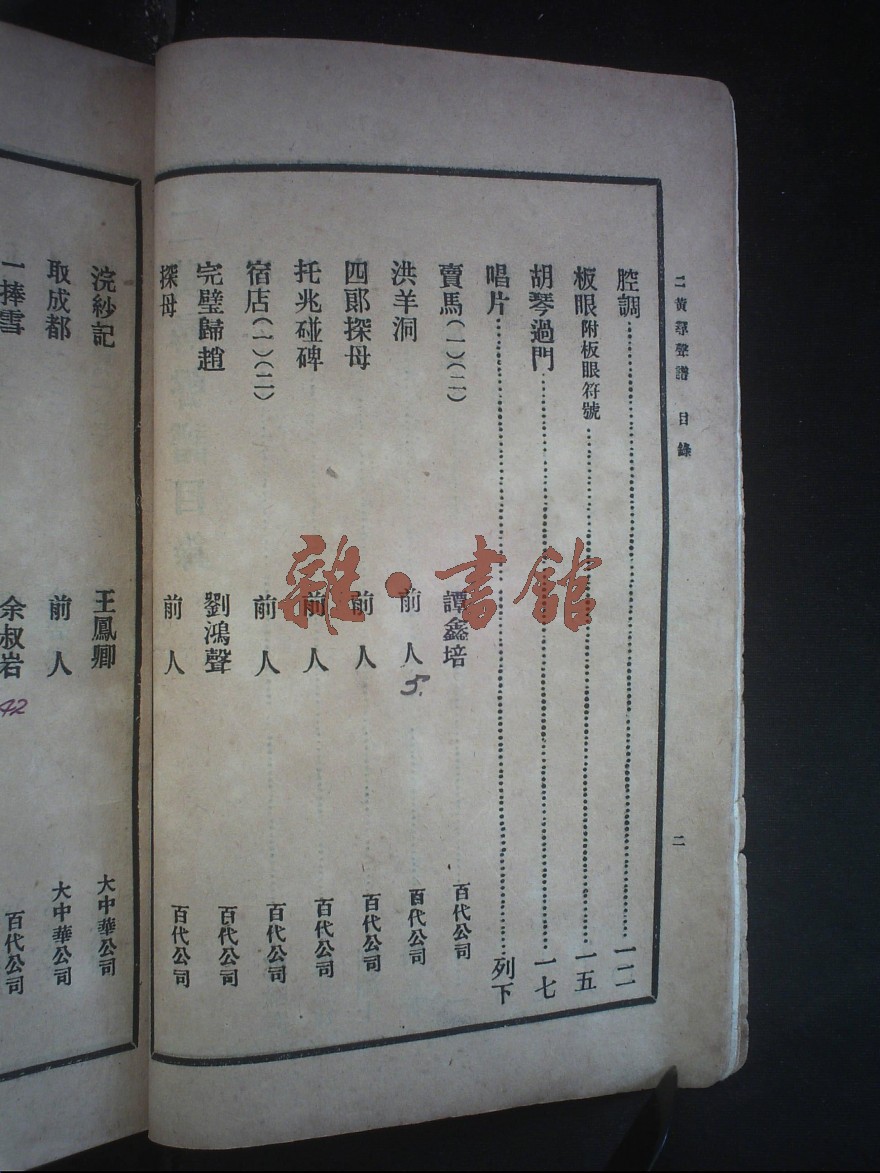 二黃尋聲譜 目錄 二
腔調 一二
板眼附板眼符號 一五
胡琴過門 一七
唱片 列下
賣馬(一)(二) 譚鑫培 百代公司
洪羊洞 前人 5. 百代公司
四郎探母 前人 百代公司
托兆碰碑 前人 百代公司
宿店(一)(二) 前人 百代公司
完璧歸趙 劉鴻聲 百代公司
探母 前人 百代公司
浣紗記 王鳳卿 大中華公司
取成都 前人 大中華公司
一捧雪 余叔岩 42 百代公司
雜·書館